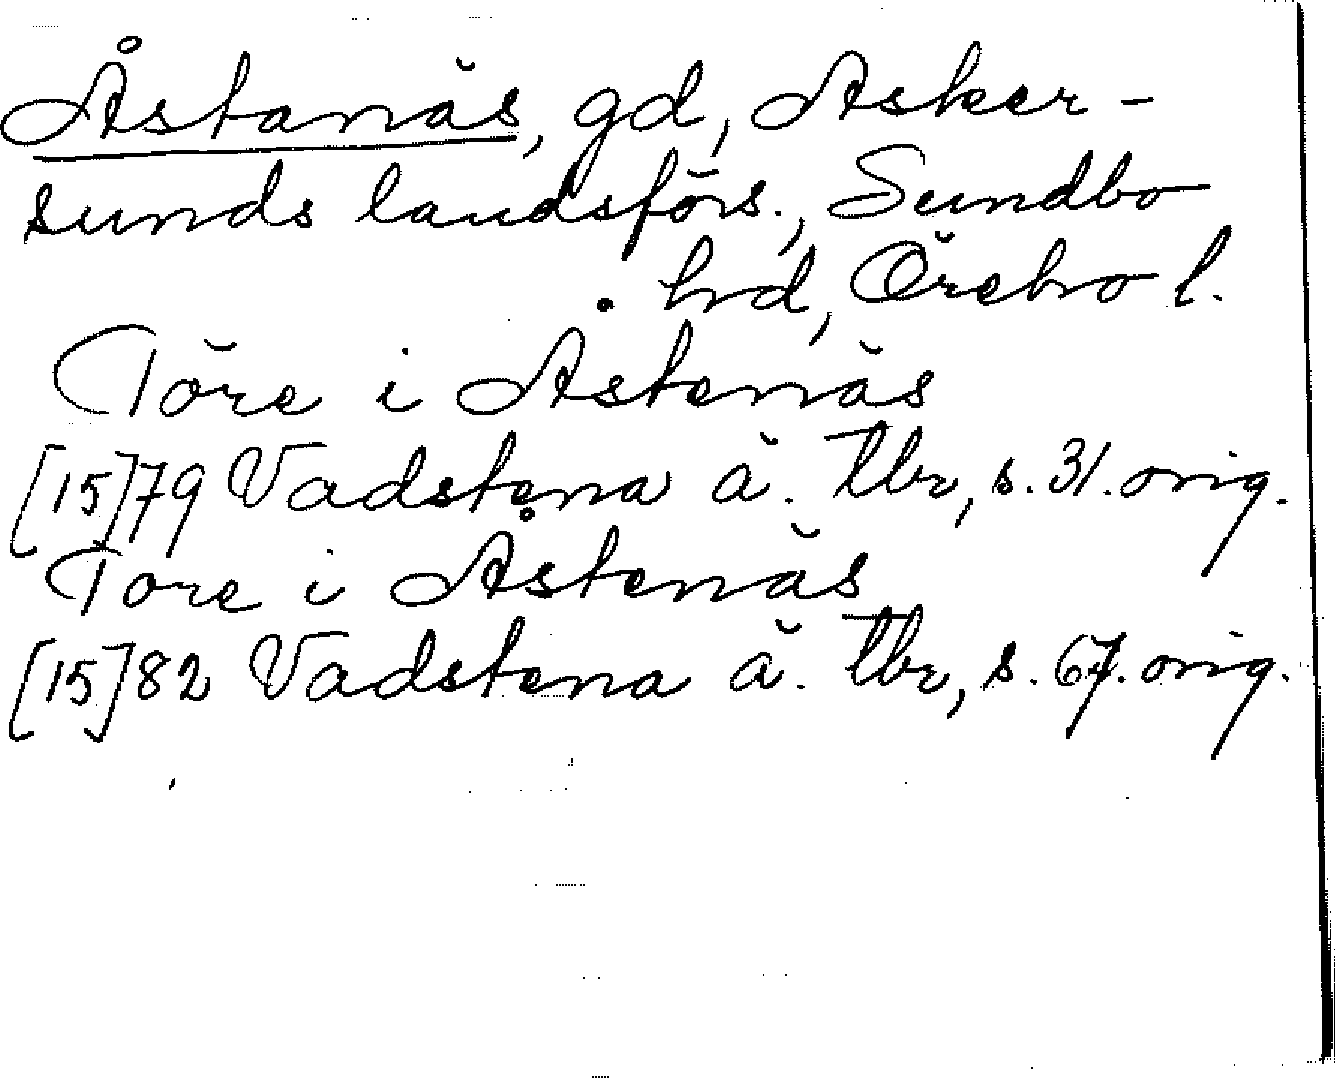 Åstanäs, gd, Asker-
sunds landsförs., Sundbo
hrd, Örebro l.
Töre i Åstenäs
[15]79 Vadstena ä. tbr, s. 31. orig.
Tore i Åstenäs
[15]82 Vadstena ä. tbr, s. 67. orig.